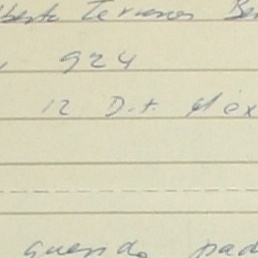 lberto Terreros Be
, 924
12 D.F. Méx
querido pad